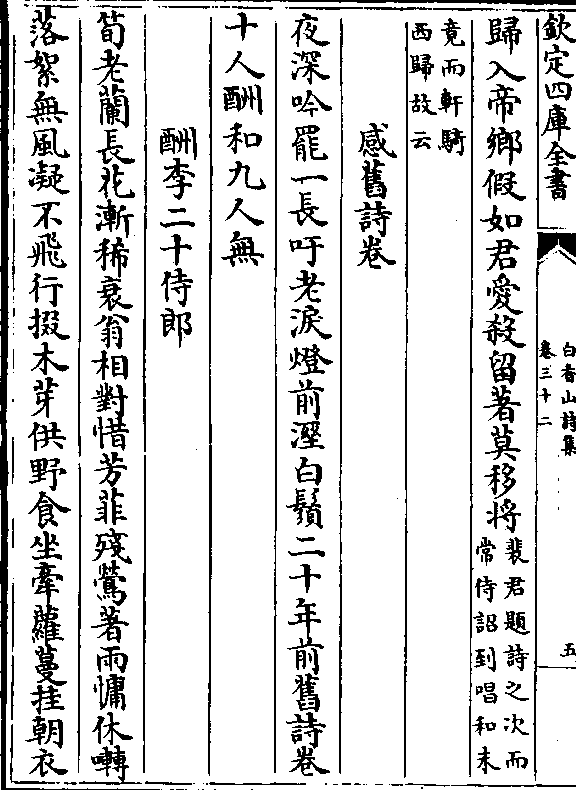 欽定四庫全書
白香山詩集
卷三十二
五
歸入帝鄉假如君愛殺留著莫移將裴君題詩之次而
常侍詔到唱和未
竟而軒騎
西歸故云
感舊詩卷
夜深吟罷一長吁老淚燈前溼白鬚二十年前舊詩卷
十人酬和九人無
酬李二十侍郎
筍老蘭長花漸稀衰翁相對惜芳菲殘鶯著雨慵休囀
落絮無風凝不飛行掇木芽供野食坐牽蘿蔓挂朝衣